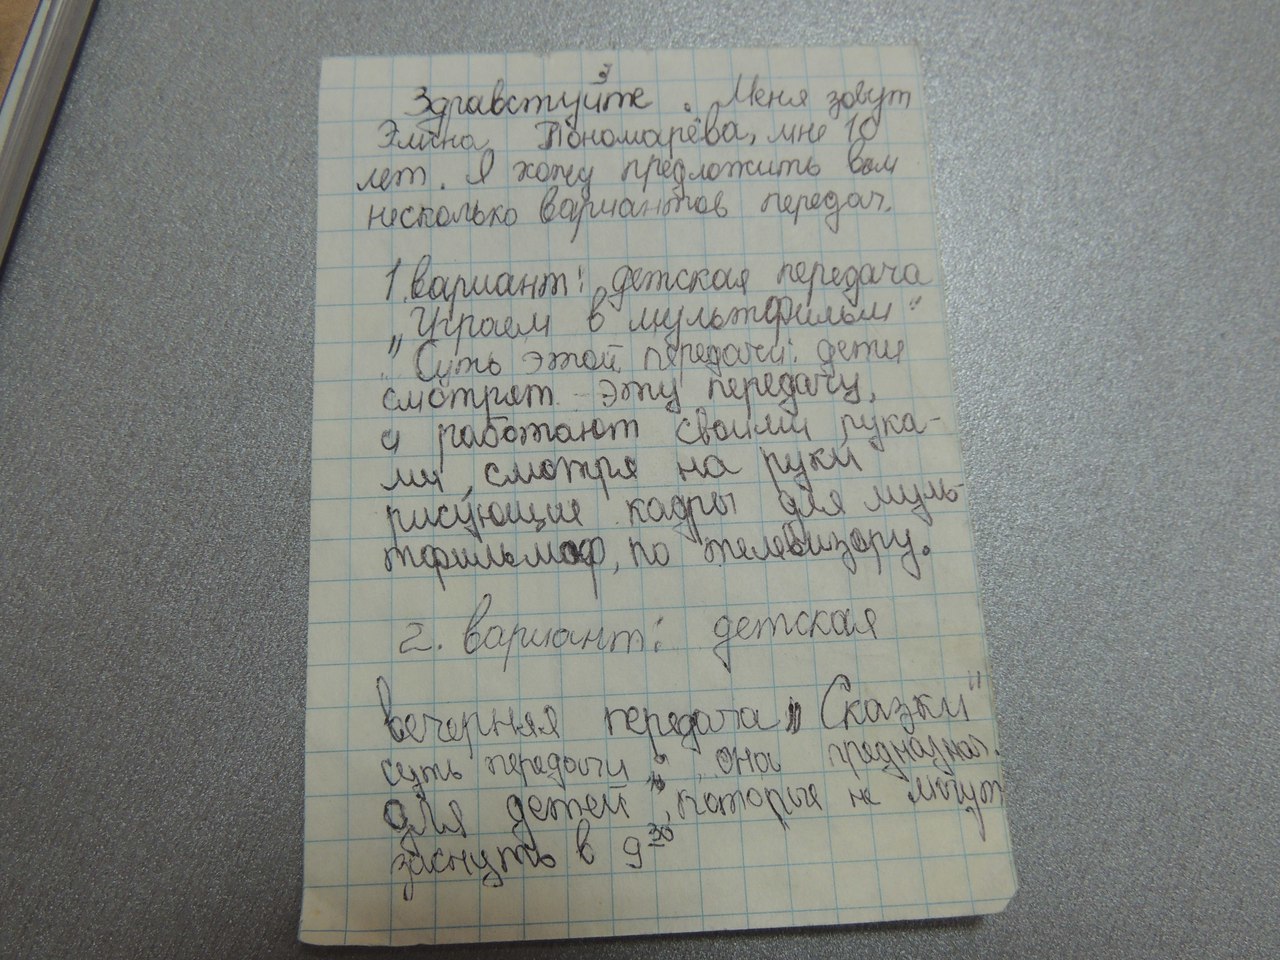 Здравстуйте. Меня зовут
Элина Пономарёва, мне 10
лет. Я хочу предложить вам
несколько вариантов передач.
1.вариант: детская передача
„Играем в мультфильм"
"Суть этой передачи: дети
смотрят эту передачу,
и работают своими рука-
ми, смотря на руки
рисующие кадры для муль-
тфильмоф, по телевизору.
2. вариант: детская
вечерняя передача „Сказки"
суть передачи: она предназнач.
для детей, которые не могут
заснуть в 9³⁰